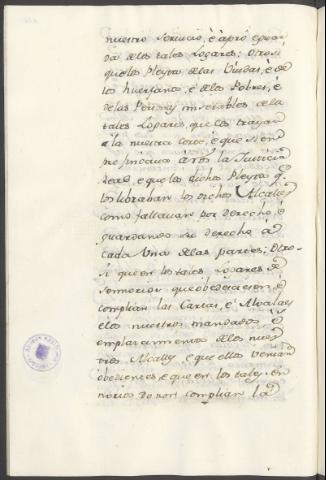 nuestro servicio, è à pro, e poon
da de los tales Logares: Otrosi
que los Pleytos de las Viudas, è de
los huerfanos, è de los Pobres, è
de las Personas miserables de la
tales Logares, que los trayan
à la nuestra corte, è que siem
pre fincava à nos la Justicia
Real, e que los dichos Pleytos q.
los libraban los dichos Alcalles
como fallavan por derecho, è
guardando su derecho à
cada una de las partes; Otro
si que en los tales, Logares de
Señorios que obedecieron, è
complian las Cartas, è Alvalaes
è los nuestros mandados è
emplazamientos de los nues
tros Alcalles, e que ellos venian
obedientes, e que en los tales, en
norios do non complian la